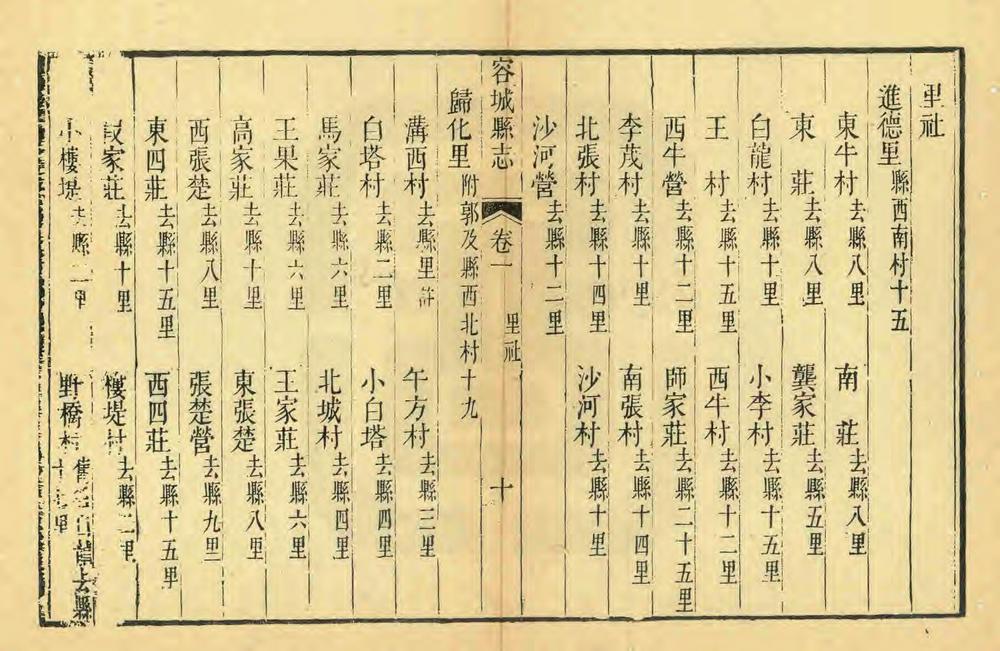 里社
進德里 縣西南村十五
東牛村去縣八里 南 莊去縣八里
東 莊去縣八里 龔家莊去縣五里
白龍村去縣十里 小李村去縣十五里
王 村去縣十五里 西牛村去縣十二里
西牛營去縣十二里 師家莊去縣二十五里
李茂村去縣十里 南張村去縣十四里
北張村去縣十四里 沙河村去縣十里
沙河營去縣十二里
容城縣志 卷一 里社 十
歸化里 附郭及縣西北村十九
溝西村去縣里許 午方村去縣三里
白塔村去縣二里 小白塔去縣四里
馬家莊去縣六里 北城村去縣四里
王果莊去縣六里 王家莊去縣六里
高家莊去縣十里 東張楚去縣八里
西張楚去縣八里 張楚營去縣九里
東四莊去縣十五里 西四莊去縣十五里
段家莊去縣十里 樓堤村去縣二里
小樓堤去縣二里 野橋村舊 去縣十 里